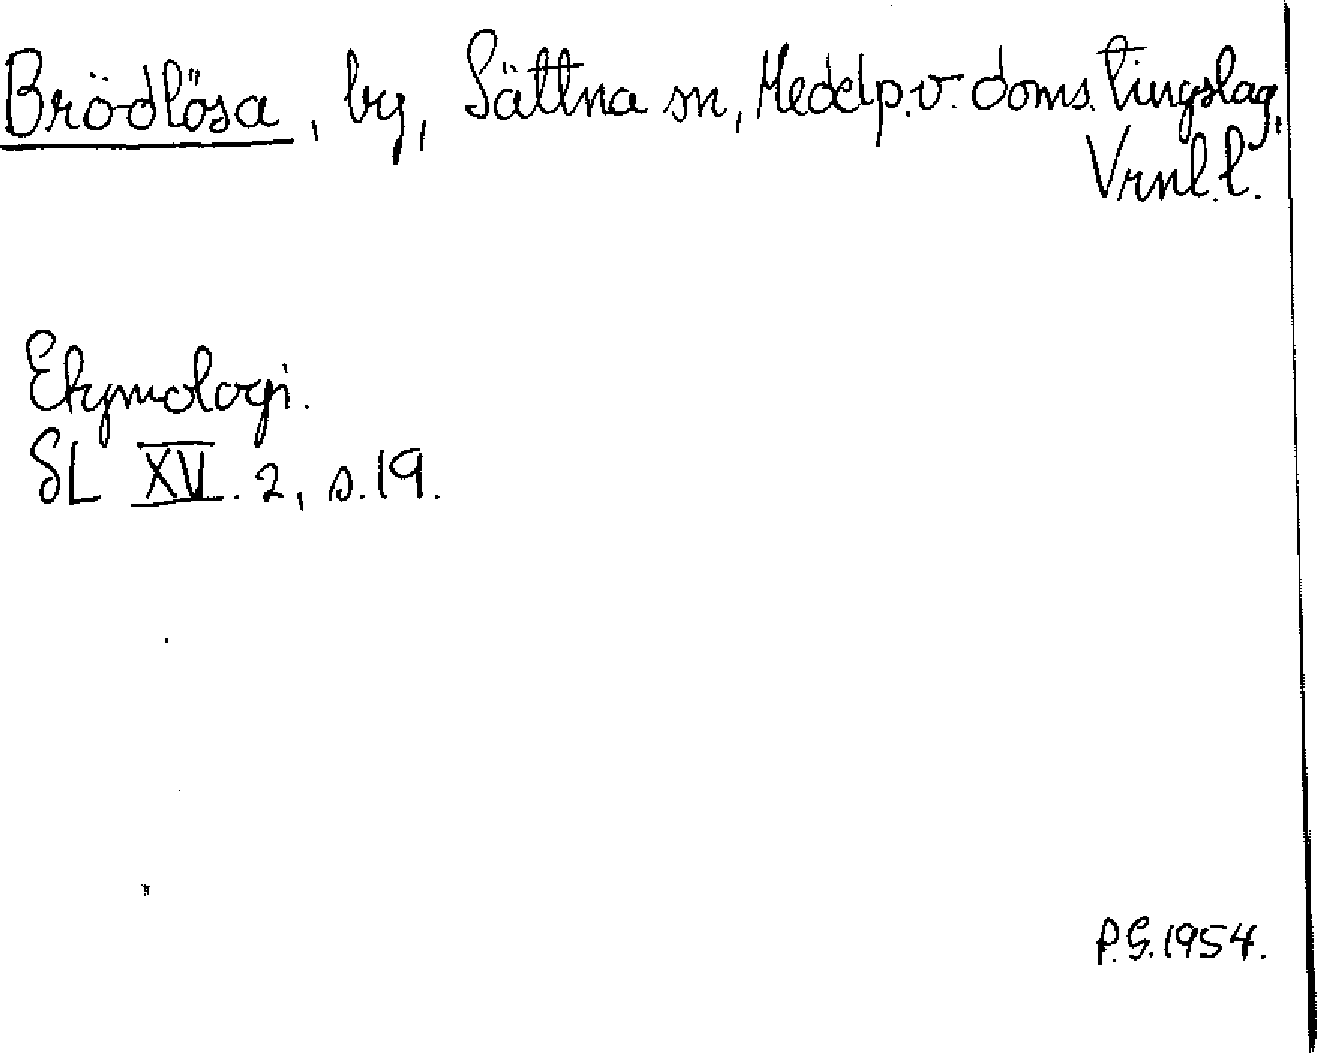 Brödlösa, by, Sättna sn, Medelp.v. doms. tingslag,
Vrnl.l.
Etymologi.
SL XV. 2, s. 19.
P.G. 1954.